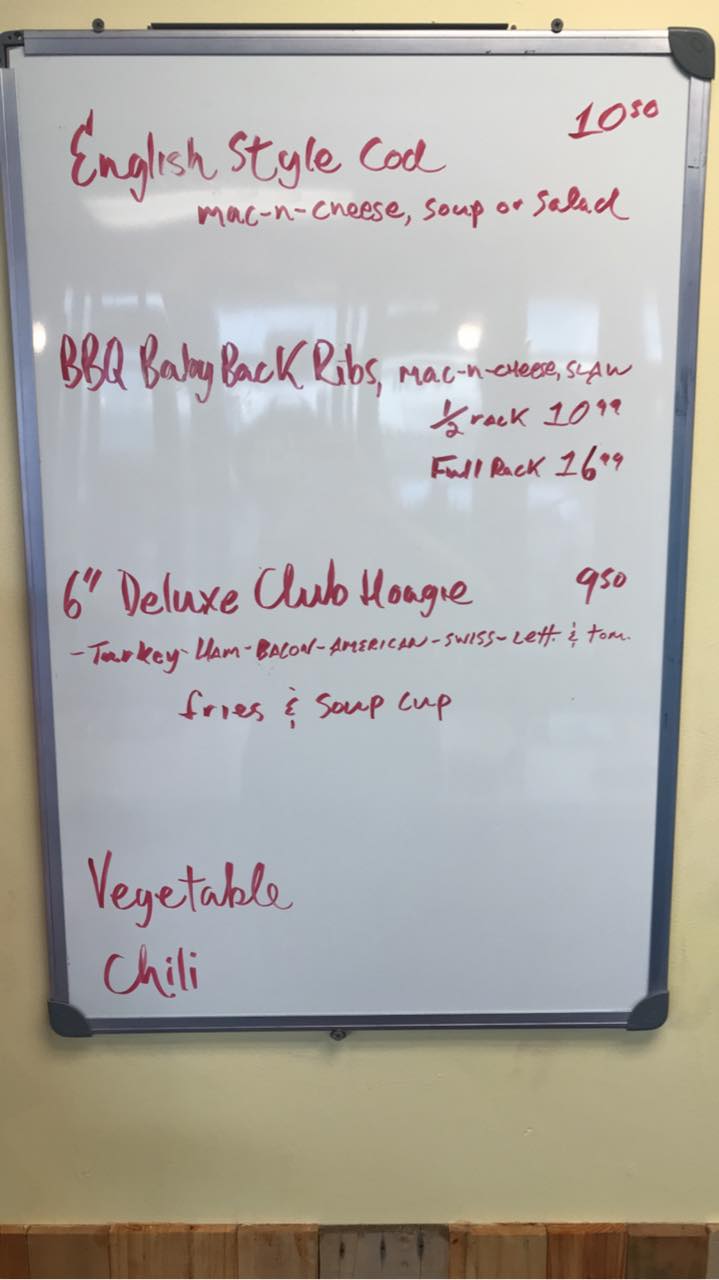 English Style Cod 10⁵⁰
mac-n-cheese, soup or salad
BBQ Baby Back Ribs, mac-n-cheese, SLAW
1/2 rack 10⁹⁹
Full Rack 16⁹⁹
6" Deluxe Club Hoagie 9⁵⁰
-Turkey-HAM-BACON-AMERICAN-SWISS-Lett. & tom.
fries & soup cup
Vegetable
Chili